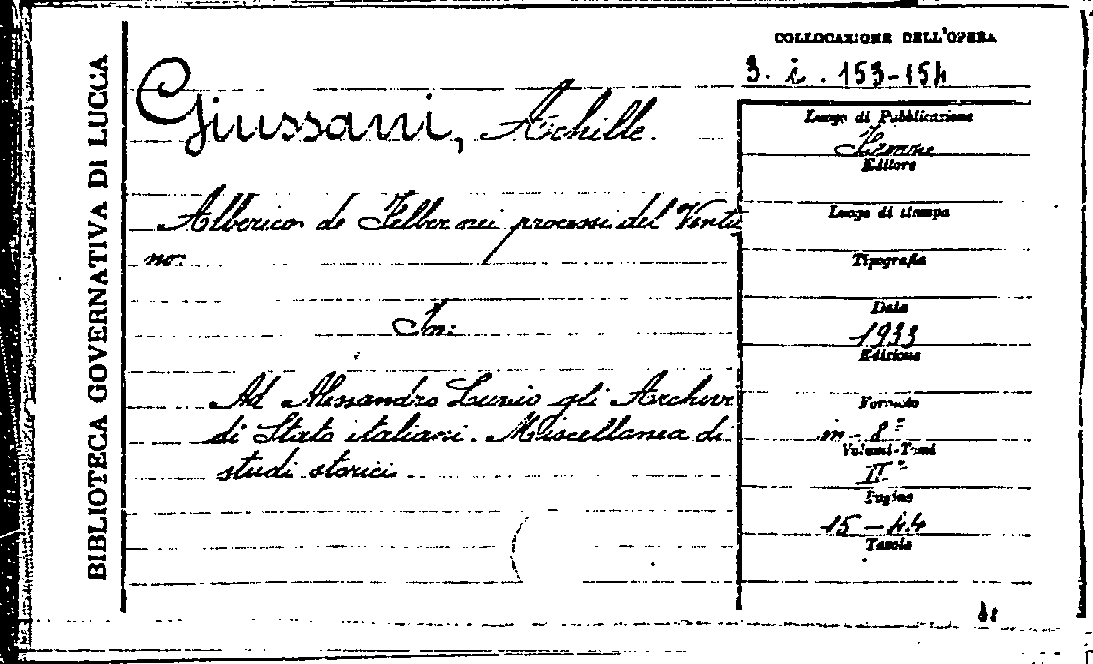 BIBLIOTECA GOVERNATIVA DI LUCCA
COLLOCAZIONE DELL'OPERA
3. i. 153-154
Giussani, Achille.
Alberico de Felber nei processi del Ventu
no.
In:
Ad Alessandro Luzio gli Archivi
di Stato italiani. Miscellanea di
studi storici.
Luogo di Pubblicazione
Firenze
Editore
Luogo di stampa
Tipografia
Data
1933
Edizione
Formato
in-8º
Volumi-Tomi
IIº
Pagine
15-44
Tavole